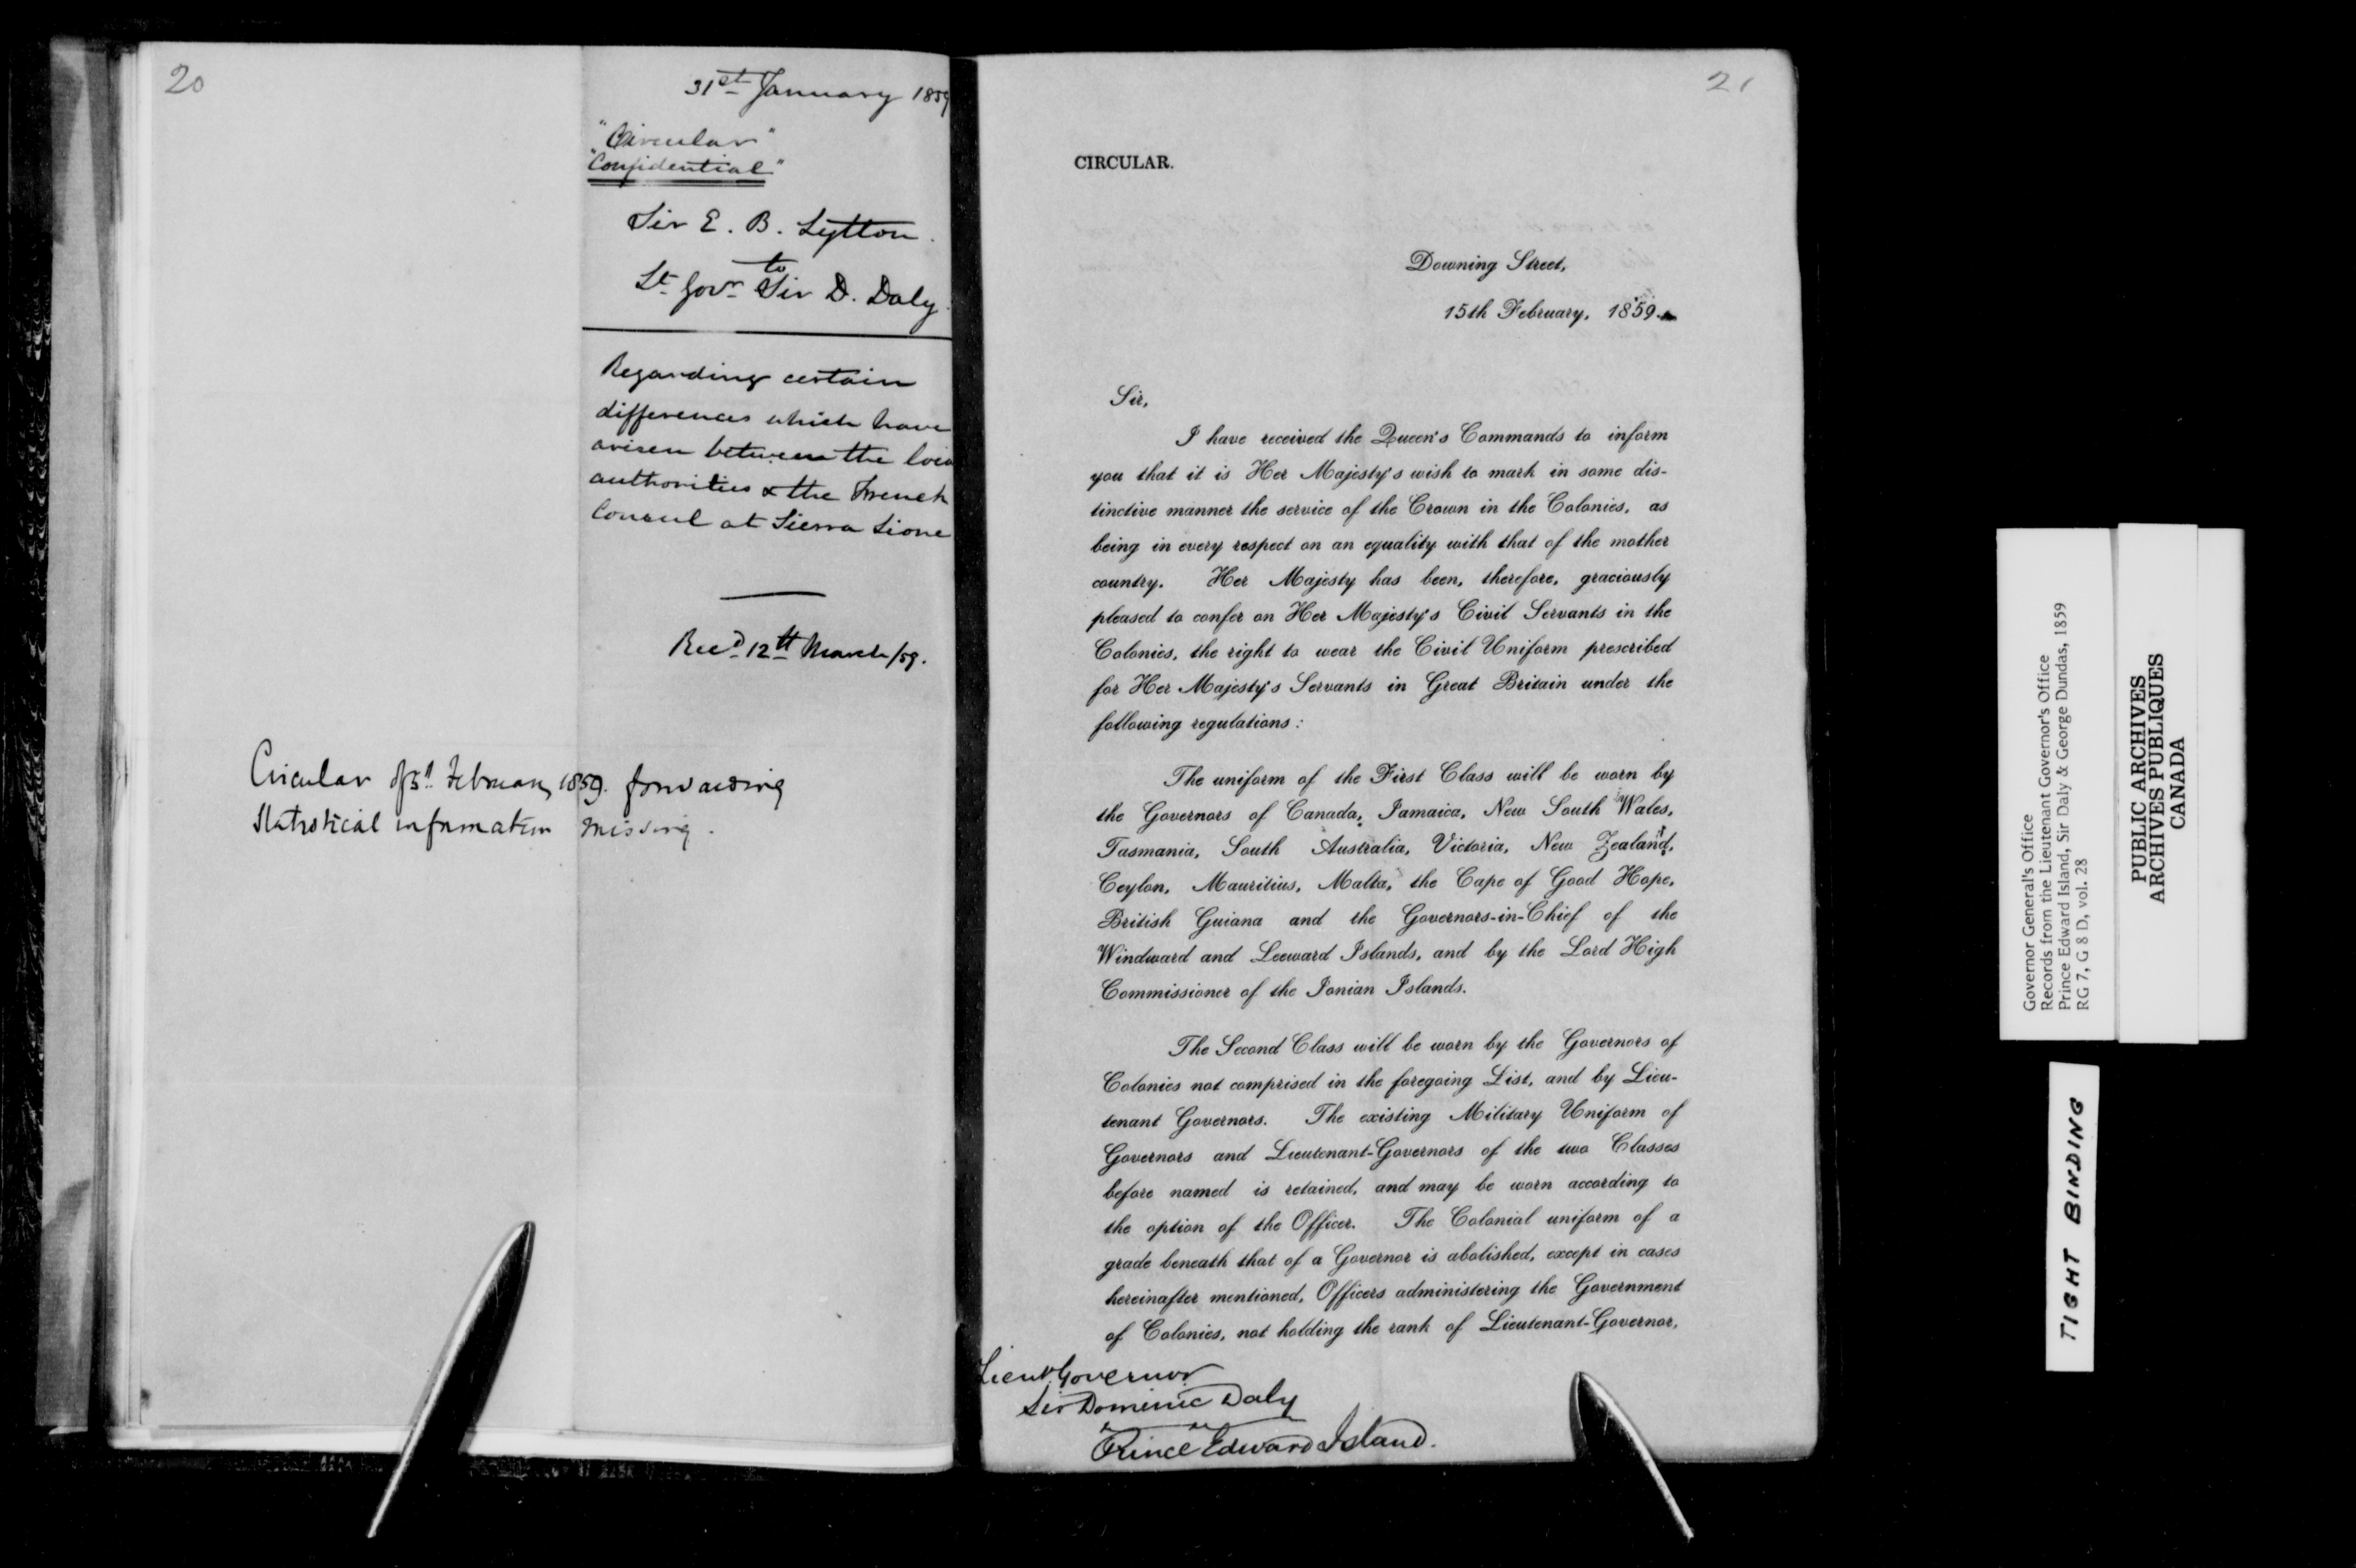 20
31st January 1859
"Circular"
"Confidential"
Sir E. B. Lytton.
to
Lt Govr Sir D. Daly.
Regarding certain
differences which have
arisen between the
authorities & the French
Consul at Sierra Lione
Recd 12th March/59.
Circular of 5th February 1859. forwarding
Statistical information missing.
21
CIRCULAR.
Downing Street,
15th February, 1859.
Sir,
I have received the Queen's Commands to inform
you that it is Her Majesty's wish to mark in some dis-
tinctive manner the service of the Crown in the Colonies, as
being in every respect on an equality with that of the mother
country. Her Majesty has been, therefore, graciously
pleased to confer on Her Majesty's Civil Servants in the
Colonies, the right to wear the Civil Uniform prescribed
for Her Majesty's Servants in Great Britain under the
following regulations:
The uniform of the First Class will be worn by
the Governors of Canada, Jamaica, New South Wales,
Tasmania, South Australia, Victoria, New Zealand,
Ceylon, Mauritius, Malta, the Cape of Good Hope,
British Guiana and the Governors-in-Chief of the
Windward and Leeward Islands, and by the Lord High
Commissioner of the Ionian Islands.
The Second Class will be worn by the Governors of
Colonies not comprised in the foregoing List, and by Lieu-
tenant Governors. The existing Military Uniform of
Governors and Lieutenant-Governors of the two Classes
before named is retained, and may be worn according to
the option of the Officer. The Colonial uniform of a
grade beneath that of a Governor is abolished, except in cases
hereinafter mentioned, Officers administering the Government
of Colonies, not holding the rank of Lieutenant-Governor,
Lieut Governor
Sir Dominic Daly
Prince Edward Island.
Governor General's Office
Records from the Lieutenant Governor's Office
Prince Edward Island, Sir Daly & George Dundas, 1859
RG 7, G 8 D, vol. 28
PUBLIC ARCHIVES
ARCHIVES PUBLIQUES
CANADA
TIGHT BINDING